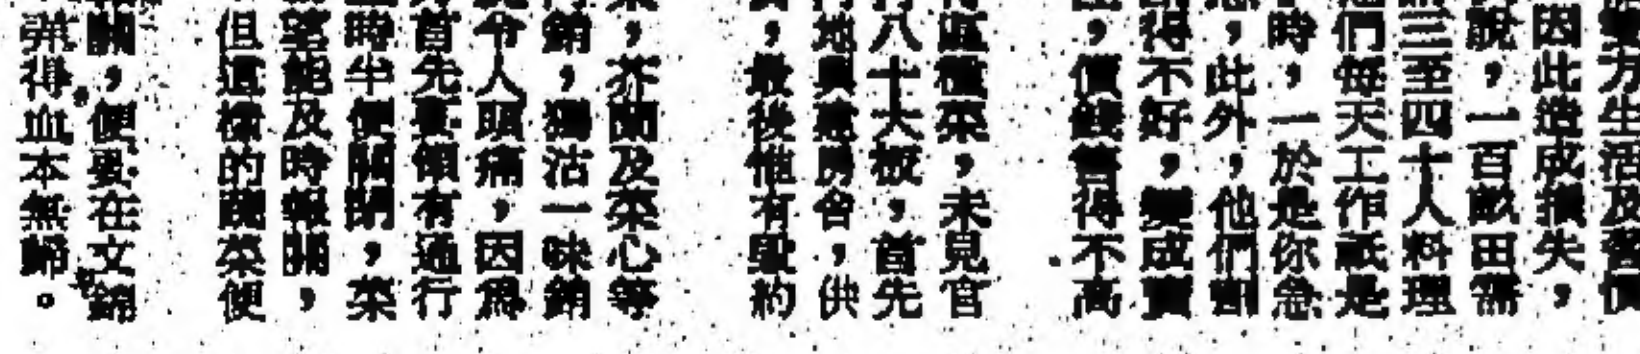 雙方生活及習慣
因此造成損失，
說，一百畝田需
三至四十人料理
們每天工作祇是
時，一於是你急
，此外，他們割
得不好，變成賣
，價錢賣得不高
區種菜，未見官
八十大板，首先
地興建房舍，供
，最後他有毀約
，芥蘭及菜心等
銷，獨沽一味銷
令人頭痛，因為
首先要領有通行
時半便關閘，菜
望能及時報關，
但這樣的蔬菜便
關，便要在文錦
弄得血本無歸。